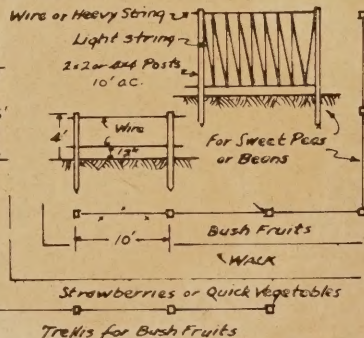 Wire or Heavy String
Light String
2x2 or 4x4 Posts
10' O.C.
4'
Wire
For Sweet Peas
or Beans
10'
Bush Fruits
WALK
Strawberries or Quick Vegetables
Trellis for Bush Fruits